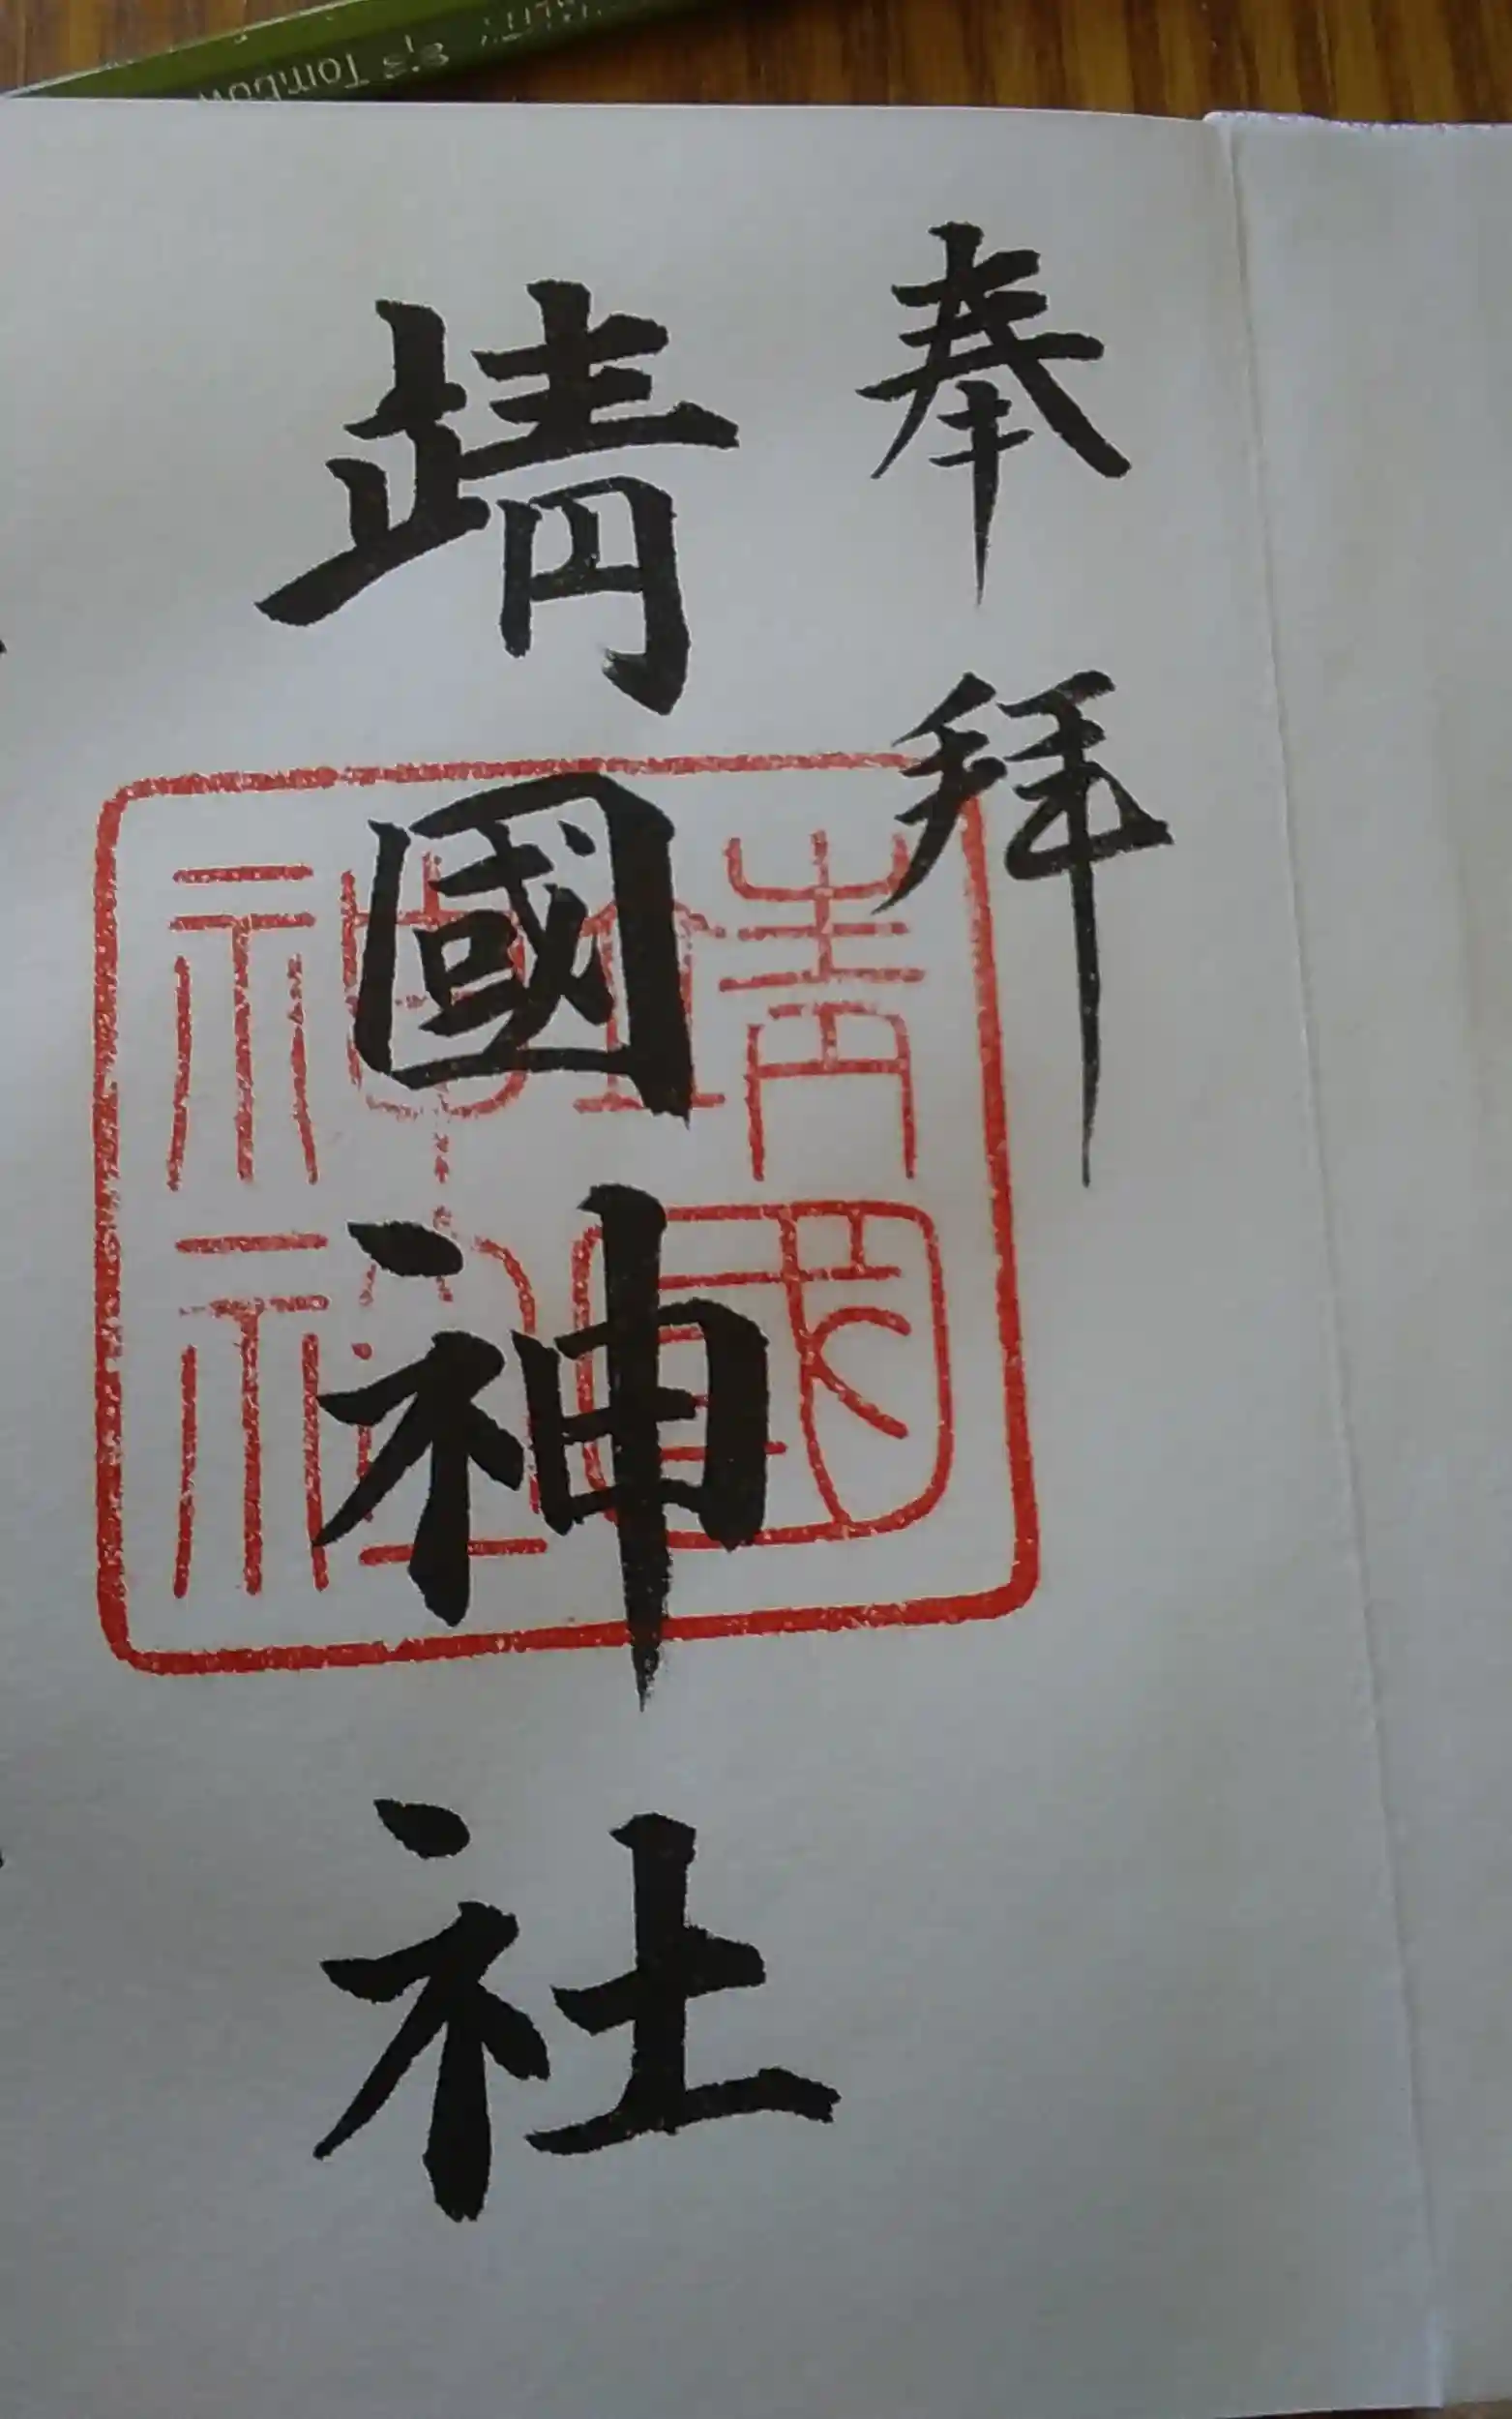 奉拝
靖國神社
靖國
神社
Tombow